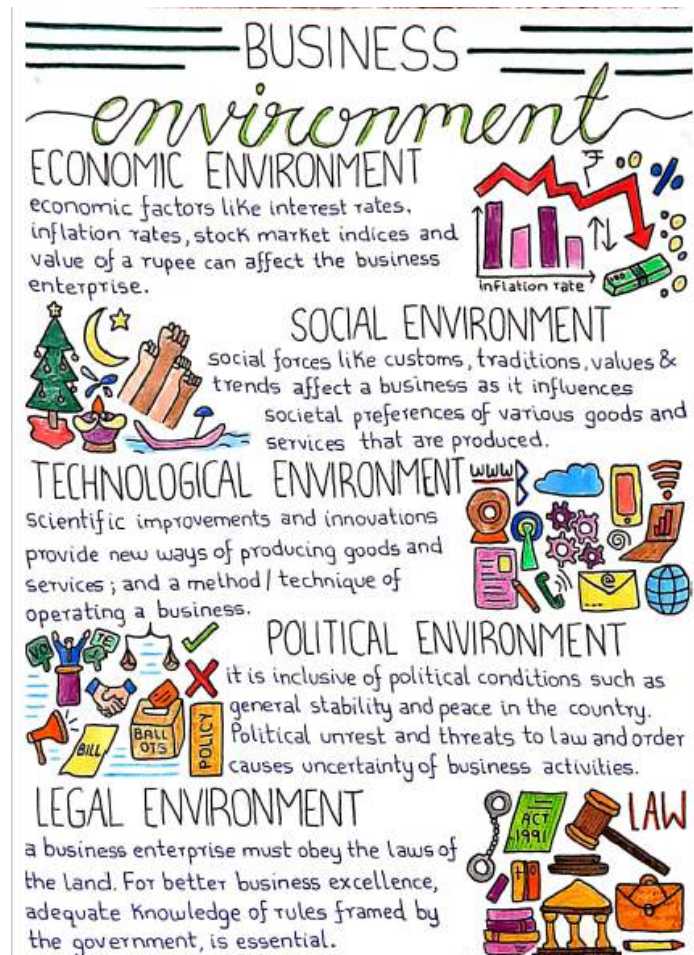 BUSINESS
environment
ECONOMIC ENVIRONMENT
economic factors like interest rates,
inflation rates, stock market indices and
value of a rupee can affect the business
enterprise.
₹
%
inflation rate
100
SOCIAL ENVIRONMENT
social forces like customs, traditions, values &
trends affect a business as it influences
societal preferences of various goods and
services that are produced.
TECHNOLOGICAL ENVIRONMENT
www
scientific improvements and innovations
provide new ways of producing goods and
services ; and a method / technique of
operating a business.
@
POLITICAL ENVIRONMENT
VO
TE
it is inclusive of political conditions such as
general stability and peace in the country.
Political unrest and threats to law and order
causes uncertainty of business activities.
BILL
BALL
OTS
POLICY
LEGAL ENVIRONMENT
a business enterprise must obey the laws of
the land. For better business excellence,
adequate knowledge of rules framed by
the government, is essential.
ACT
1991
LAW